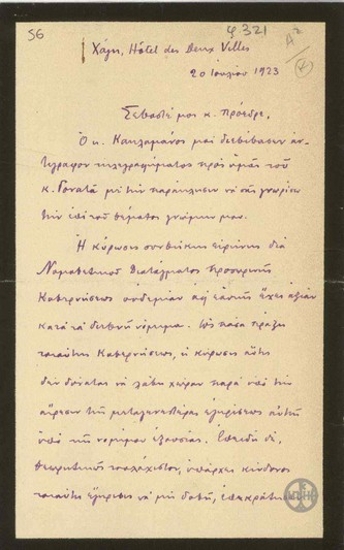 56
φ. 321
Χάγη, Hôtel des Deux Villes
20 Ιουλίου 1923
Σεβαστέ μοι κ. Πρόεδρε,
Ο κ. Κακλαμάνος μοι διεβίβασεν ἀν-
τίγραφον τηλεγραφήματος πρὸς ὑμᾶς τοῦ
κ. Γονατᾶ μὲ τὴν παράκλησιν νὰ σᾶς γνωρίσω
τὴν ἐπὶ τοῦ θέματος γνώμην μου.
Ἡ κύρωσις συνθήκης εἰρήνης διὰ
Νομοθετικοῦ Διατάγματος προσωρινῆς
Κυβερνήσεως οὐδεμίαν ἀφ' ἑαυτῆς ἔχει ἀξίαν
κατὰ τὰ διεθνῆ νόμιμα. Ὡς πᾶσα πρᾶξις
τοιαύτης Κυβερνήσεως, ἡ κύρωσις αὕτη
δὲν δύναται νὰ λάβῃ χώραν παρὰ ὑπὸ τὴν
αἵρεσιν τῆς μεταγενεστέρας ἐγκρίσεως αὐτῆς
ὑπὸ τῆς νομίμου ἐξουσίας. Ἐπειδὴ δὲ,
θεωρητικῶς τοὐλάχιστον, ὑπάρχει κίνδυνος
τοιαύτη ἔγκρισις νὰ μὴ δοθῇ,